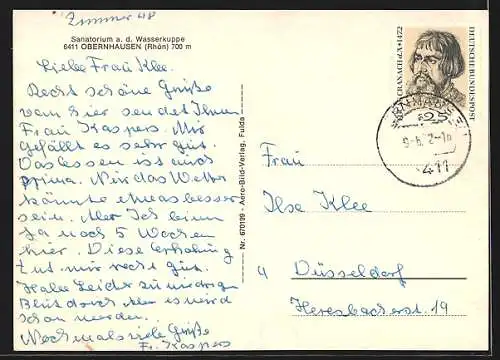 Zimmer 48
Sanatorium a. d. Wasserkuppe
6411 OBERNHAUSEN (Rhön) 700 m
Liebe Frau Klee.
Recht schöne Grüße
von hier sendet Ihnen
Frau Kaspers. Mir
gefällt es sehr gut.
Das essen ist auch
prima. Nur das Wetter
könnte etwas besser
sein. Aber Ich bin
ja noch 5 Wochen
hier. Diese Erholung
tut mir recht gut.
Habe Leider zu niedrigen
Blutdruck Aber es wird
schon werden.
Nochmals viele Grüße
Fr. Kaspers
Nr. 670139 - Aero-Bild-Verlag, Fulda
CRANACH d.Ä. * 1472
DEUTSCHE BUNDESPOST
25
6411
Frau
Ilse Klee
4 Düsseldorf
Heresbachstr. 19